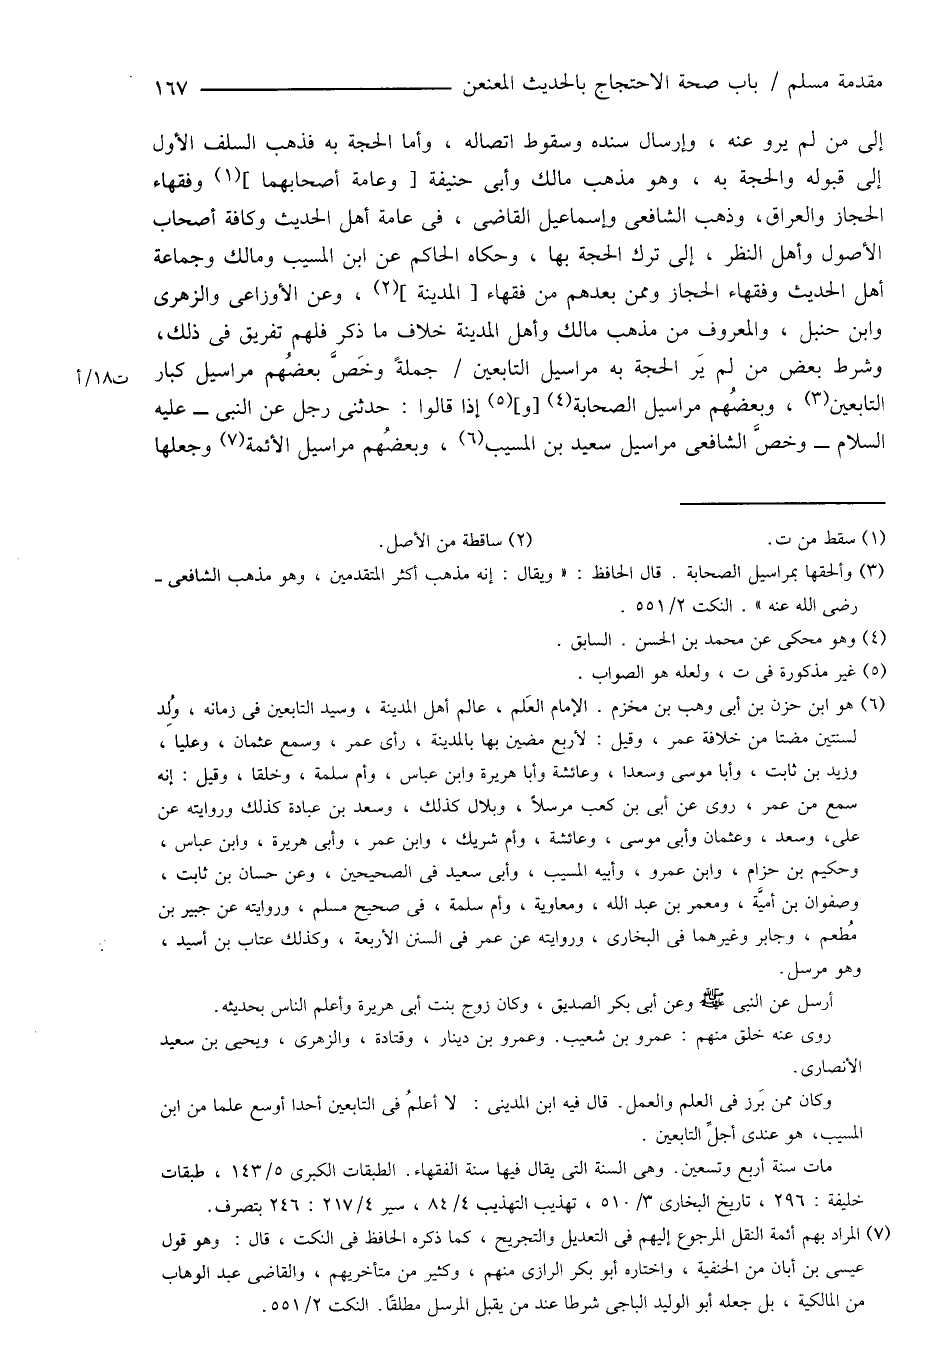 مقدمة مسلم / باب صحة الاحتجاج بالحديث المعنعن ـــــــــــــ ١٦٧
إلى من لم يرو عنه ، وإرسال سنده وسقوط اتصاله ، وأما الحجة به فذهب السلف الأول
إلى قبوله والحجة به ، وهو مذهب مالك وأبى حنيفة [ وعامة أصحابهما ](١) وفقهاء
الحجاز والعراق، وذهب الشافعى وإسماعيل القاضى ، فى عامة أهل الحديث وكافة أصحاب
الأصول وأهل النظر ، إلى ترك الحجة بها ، وحكاه الحاكم عن ابن المسيب ومالك وجماعة
أهل الحديث وفقهاء الحجاز وممن بعدهم من فقهاء [ المدينة ](٢) ، وعن الأوزاعى والزهرى
وابن حنبل ، والمعروف من مذهب مالك وأهل المدينة خلاف ما ذكر فلهم تفريق فى ذلك،
وشرط بعض من لم يَر الحجة به مراسيل التابعين / جملةً وخَصَّ بعضُهم مراسيل كبار ت١٨/أ
التابعين(٣) ، وبعضُهم مراسيل الصحابة(٤) [و](٥) إذا قالوا : حدثنى رجل عن النبى ــ عليه
السلام ــ وخصَّ الشافعى مراسيل سعيد بن المسيب(٦) ، وبعضُهم مراسيل الأئمة(٧) وجعلها
(١) سقط من ت. (٢) ساقطة من الأصل.
(٣) وألحقها بمراسيل الصحابة . قال الحافظ : « ويقال : إنه مذهب أكثر المتقدمين ، وهو مذهب الشافعى ـ
رضى الله عنه » . النكت ٢/ ٥٥١ .
(٤) وهو محكى عن محمد بن الحسن . السابق .
(٥) غير مذكورة فى ت ، ولعله هو الصواب .
(٦) هو ابن حزن بن أبى وهب بن مخزم . الإمام العَلَم ، عالم أهل المدينة ، وسيد التابعين فى زمانه ، وُلِد
لسنتين مضتا من خلافة عمر ، وقيل : لأربع مضين بها بالمدينة ، رأى عمر ، وسمع عثمان ، وعليا ،
وزيد بن ثابت ، وأبا موسى وسعدا ، وعائشة وأبا هريرة وابن عباس ، وأم سلمة ، وخلقا ، وقيل : إنه
سمع من عمر ، روى عن أبى بن كعب مرسلاً ، وبلال كذلك ، وسعد بن عبادة كذلك وروايته عن
على، وسعد ، وعثمان وأبى موسى ، وعائشة ، وأم شريك ، وابن عمر ، وأبى هريرة ، وابن عباس ،
وحكيم بن حزام ، وابن عمرو ، وأبيه المسيب ، وأبى سعيد فى الصحيحين ، وعن حسان بن ثابت ،
وصفوان بن أميَّة ، ومعمر بن عبد الله ، ومعاوية ، وأم سلمة ، فى صحيح مسلم ، وروايته عن جبير بن
مُطعم ، وجابر وغيرهما فى البخارى ، وروايته عن عمر فى السنن الأربعة ، وكذلك عتاب بن أسيد ،
وهو مرسل.
أرسل عن النبى ﷺ وعن أبى بكر الصديق ، وكان زوج بنت أبى هريرة وأعلم الناس بحديثه.
روى عنه خلق منهم : عمرو بن شعيب. وعمرو بن دينار ، وقتادة ، والزهرى ، ويحيى بن سعيد
الأنصارى.
وكان ممن بَرز فى العلم والعمل. قال فيه ابن المدينى : لا أعلمُ فى التابعين أحدا أوسع علما من ابن
المسيب، هو عندى أجلِّ التابعين .
مات سنة أربع وتسعين. وهى السنة التى يقال فيها سنة الفقهاء. الطبقات الكبرى ٥/ ١٤٣ ، طبقات
خليفة : ٢٩٦ ، تاريخ البخارى ٣/ ٥١٠ ، تهذيب التهذيب ٤/ ٨٤ ، سير ٤/ ٢١٧ : ٢٤٦ بتصرف.
(٧) المراد بهم أئمة النقل المرجوع إليهم فى التعديل والتجريح ، كما ذكره الحافظ فى النكت ، قال : وهو قول
عيسى بن أبان من الحنفية ، واختاره أبو بكر الرازى منهم ، وكثير من متأخريهم ، والقاضى عبد الوهاب
من المالكية ، بل جعله أبو الوليد الباجى شرطا عند من يقبل المرسل مطلقًا. النكت ٢/ ٥٥١.